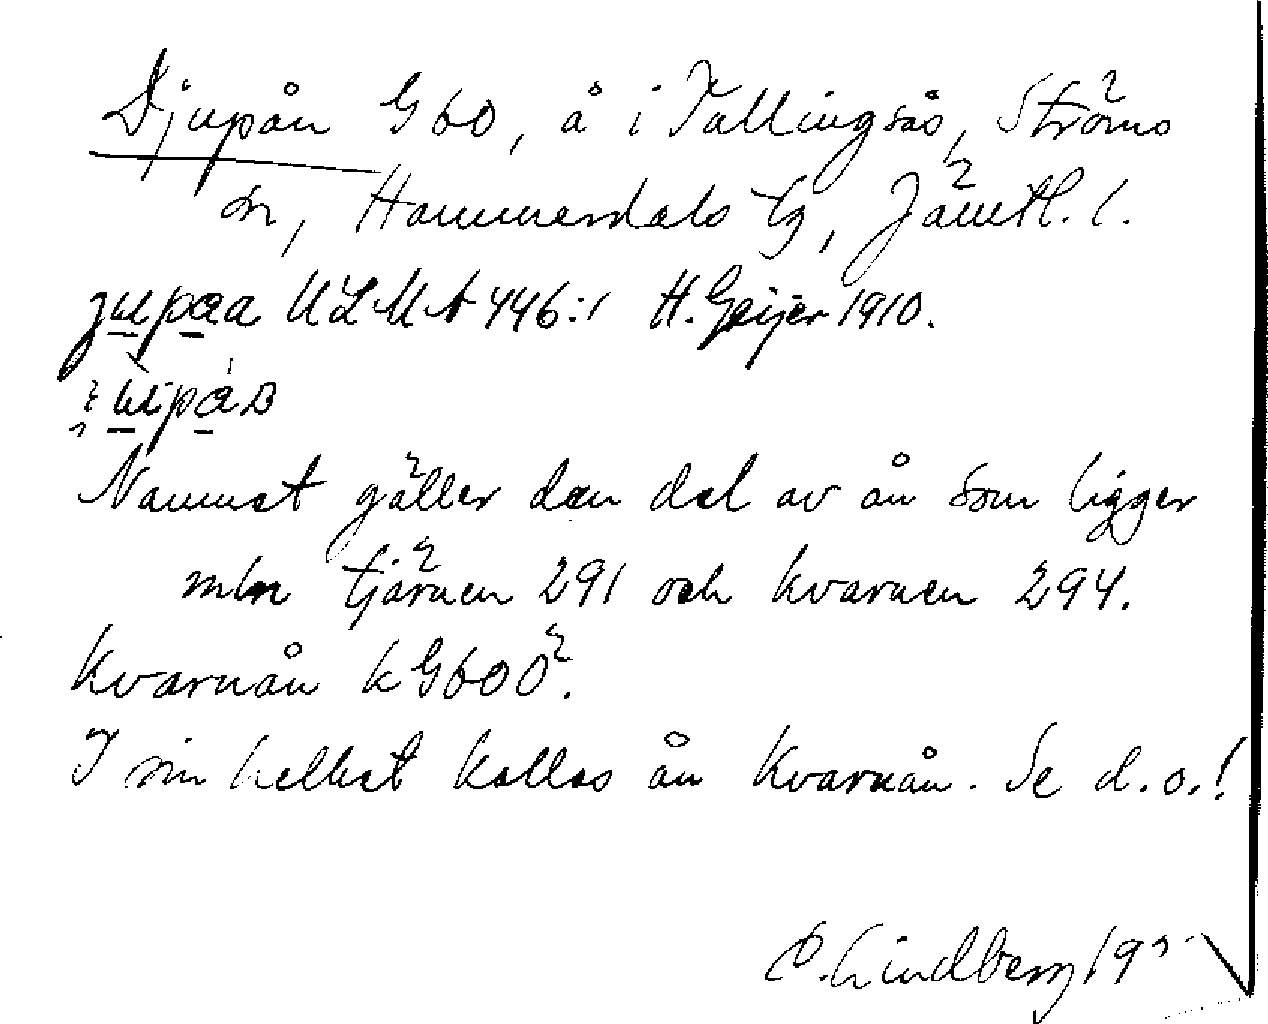 Djupån G60, å i Tullingsås, Ströms
sn, Hammerdals tg, Jämtl. l.
jupaa ULMA 446:1 H. Geijer 1910.
Namnet gäller den del av ån som ligger
mln tjärnen 291 och kvarnen 294.
Kvarnån k G60 Ö.
I sin helhet kallas ån Kvarnån. Se d.o.!
Lindberg 19